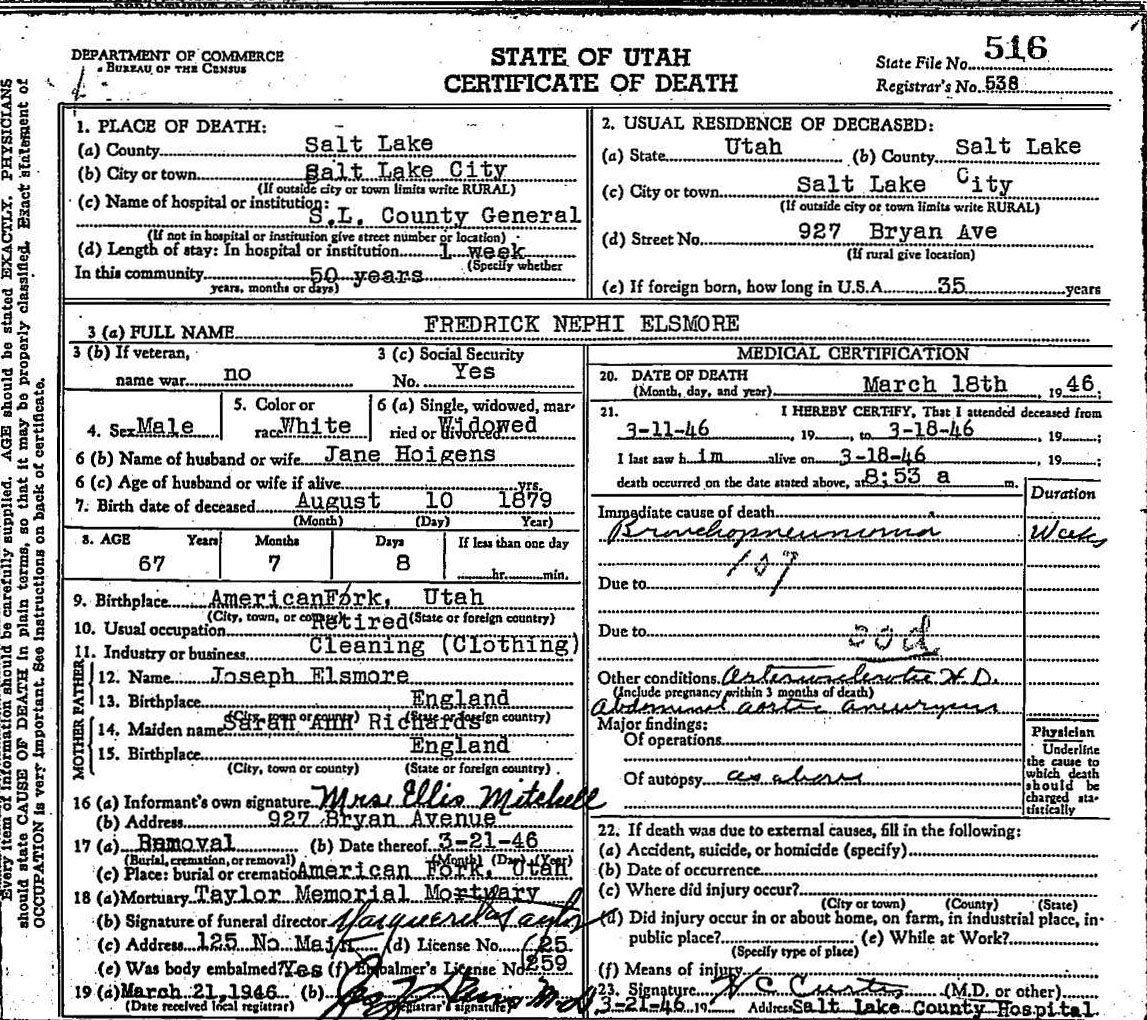 DEPARTMENT OF COMMERCE
BUREAU OF THE CENSUS
STATE OF UTAH
CERTIFICATE OF DEATH
State File No. 516
Registrar's No. 538
Every item of information should be carefully supplied. AGE should be stated EXACTLY. PHYSICIANS
should state CAUSE OF DEATH in plain terms, so that it may be properly classified. Exact statement of
OCCUPATION is very important. See instructions on back of certificate.
1. PLACE OF DEATH:
(a) County Salt Lake
(b) City or town Salt Lake City
(If outside city or town limits write RURAL)
(c) Name of hospital or institution:
S.L. County General
(If not in hospital or institution give street number or location)
(d) Length of stay: In hospital or institution 1 week
(Specify whether
In this community 50 years
years, months or days)
2. USUAL RESIDENCE OF DECEASED:
(a) State Utah (b) County Salt Lake
(c) City or town Salt Lake City
(If outside city or town limits write RURAL)
(d) Street No. 927 Bryan Ave
(If rural give location)
(e) If foreign born, how long in U.S.A. 35 years
3 (a) FULL NAME FREDRICK NEPHI ELSMORE
3 (b) If veteran,
name war no
3 (c) Social Security
No. Yes
4. Sex Male
5. Color or
race White
6 (a) Single, widowed, mar-
ried or divorced Widowed
6 (b) Name of husband or wife Jane Hoigens
6 (c) Age of husband or wife if alive yrs.
7. Birth date of deceased August 10 1879
(Month) (Day) Year)
8. AGE Years Months Days If less than one day
67 7 8 hr. min.
9. Birthplace American Fork, Utah
(City, town, or county) (State or foreign country)
10. Usual occupation Retired
11. Industry or business Cleaning (Clothing)
FATHER
12. Name Joseph Elsmore
13. Birthplace England
(City, town or county) (State or foreign country)
MOTHER
14. Maiden name Sarah Ann Richards
15. Birthplace England
(City, town or county) (State or foreign country)
16 (a) Informant's own signature Mrs. Ellis Mitchell
(b) Address 927 Bryan Avenue
17 (a) Removal (b) Date thereof 3-21-46
(Burial, cremation, or removal) (Month) (Day) (Year)
(c) Place: burial or cremation American Fork, Utah
18 (a) Mortuary Taylor Memorial Mortuary
(b) Signature of funeral director Marguerite Taylor
(c) Address 125 No Main (d) License No. 25
(e) Was body embalmed? Yes (f) Embalmer's License No. 259
19 (a) March 21, 1946 (b)
(Date received local registrar) (Registrar's signature)
MEDICAL CERTIFICATION
20. DATE OF DEATH
(Month, day, and year) March 18th 1946;
21. I HEREBY CERTIFY, That I attended deceased from
3-11-46, 19 , to 3-18-46, 19 ;
I last saw him alive on 3-18-46, 19 ;
death occurred on the date stated above, at 8:53 a m.
Duration
Immediate cause of death
Bronchopneumonia Weeks
107
Due to
Due to 30d
Other conditions Arteriosclerotic H.D.
(Include pregnancy within 3 months of death)
Abdominal aortic aneurysm
Major findings:
Of operations
Of autopsy as above
Physician
Underline
the cause to
which death
should be
charged sta-
tistically
22. If death was due to external causes, fill in the following:
(a) Accident, suicide, or homicide (specify)
(b) Date of occurrence
(c) Where did injury occur?
(City or town) (County) (State)
(d) Did injury occur in or about home, on farm, in industrial place, in-
public place? (e) While at Work?
(Specify type of place)
(f) Means of injury
23. Signature H C (M.D. or other)
3-21-46 19 Address Salt Lake County Hospital